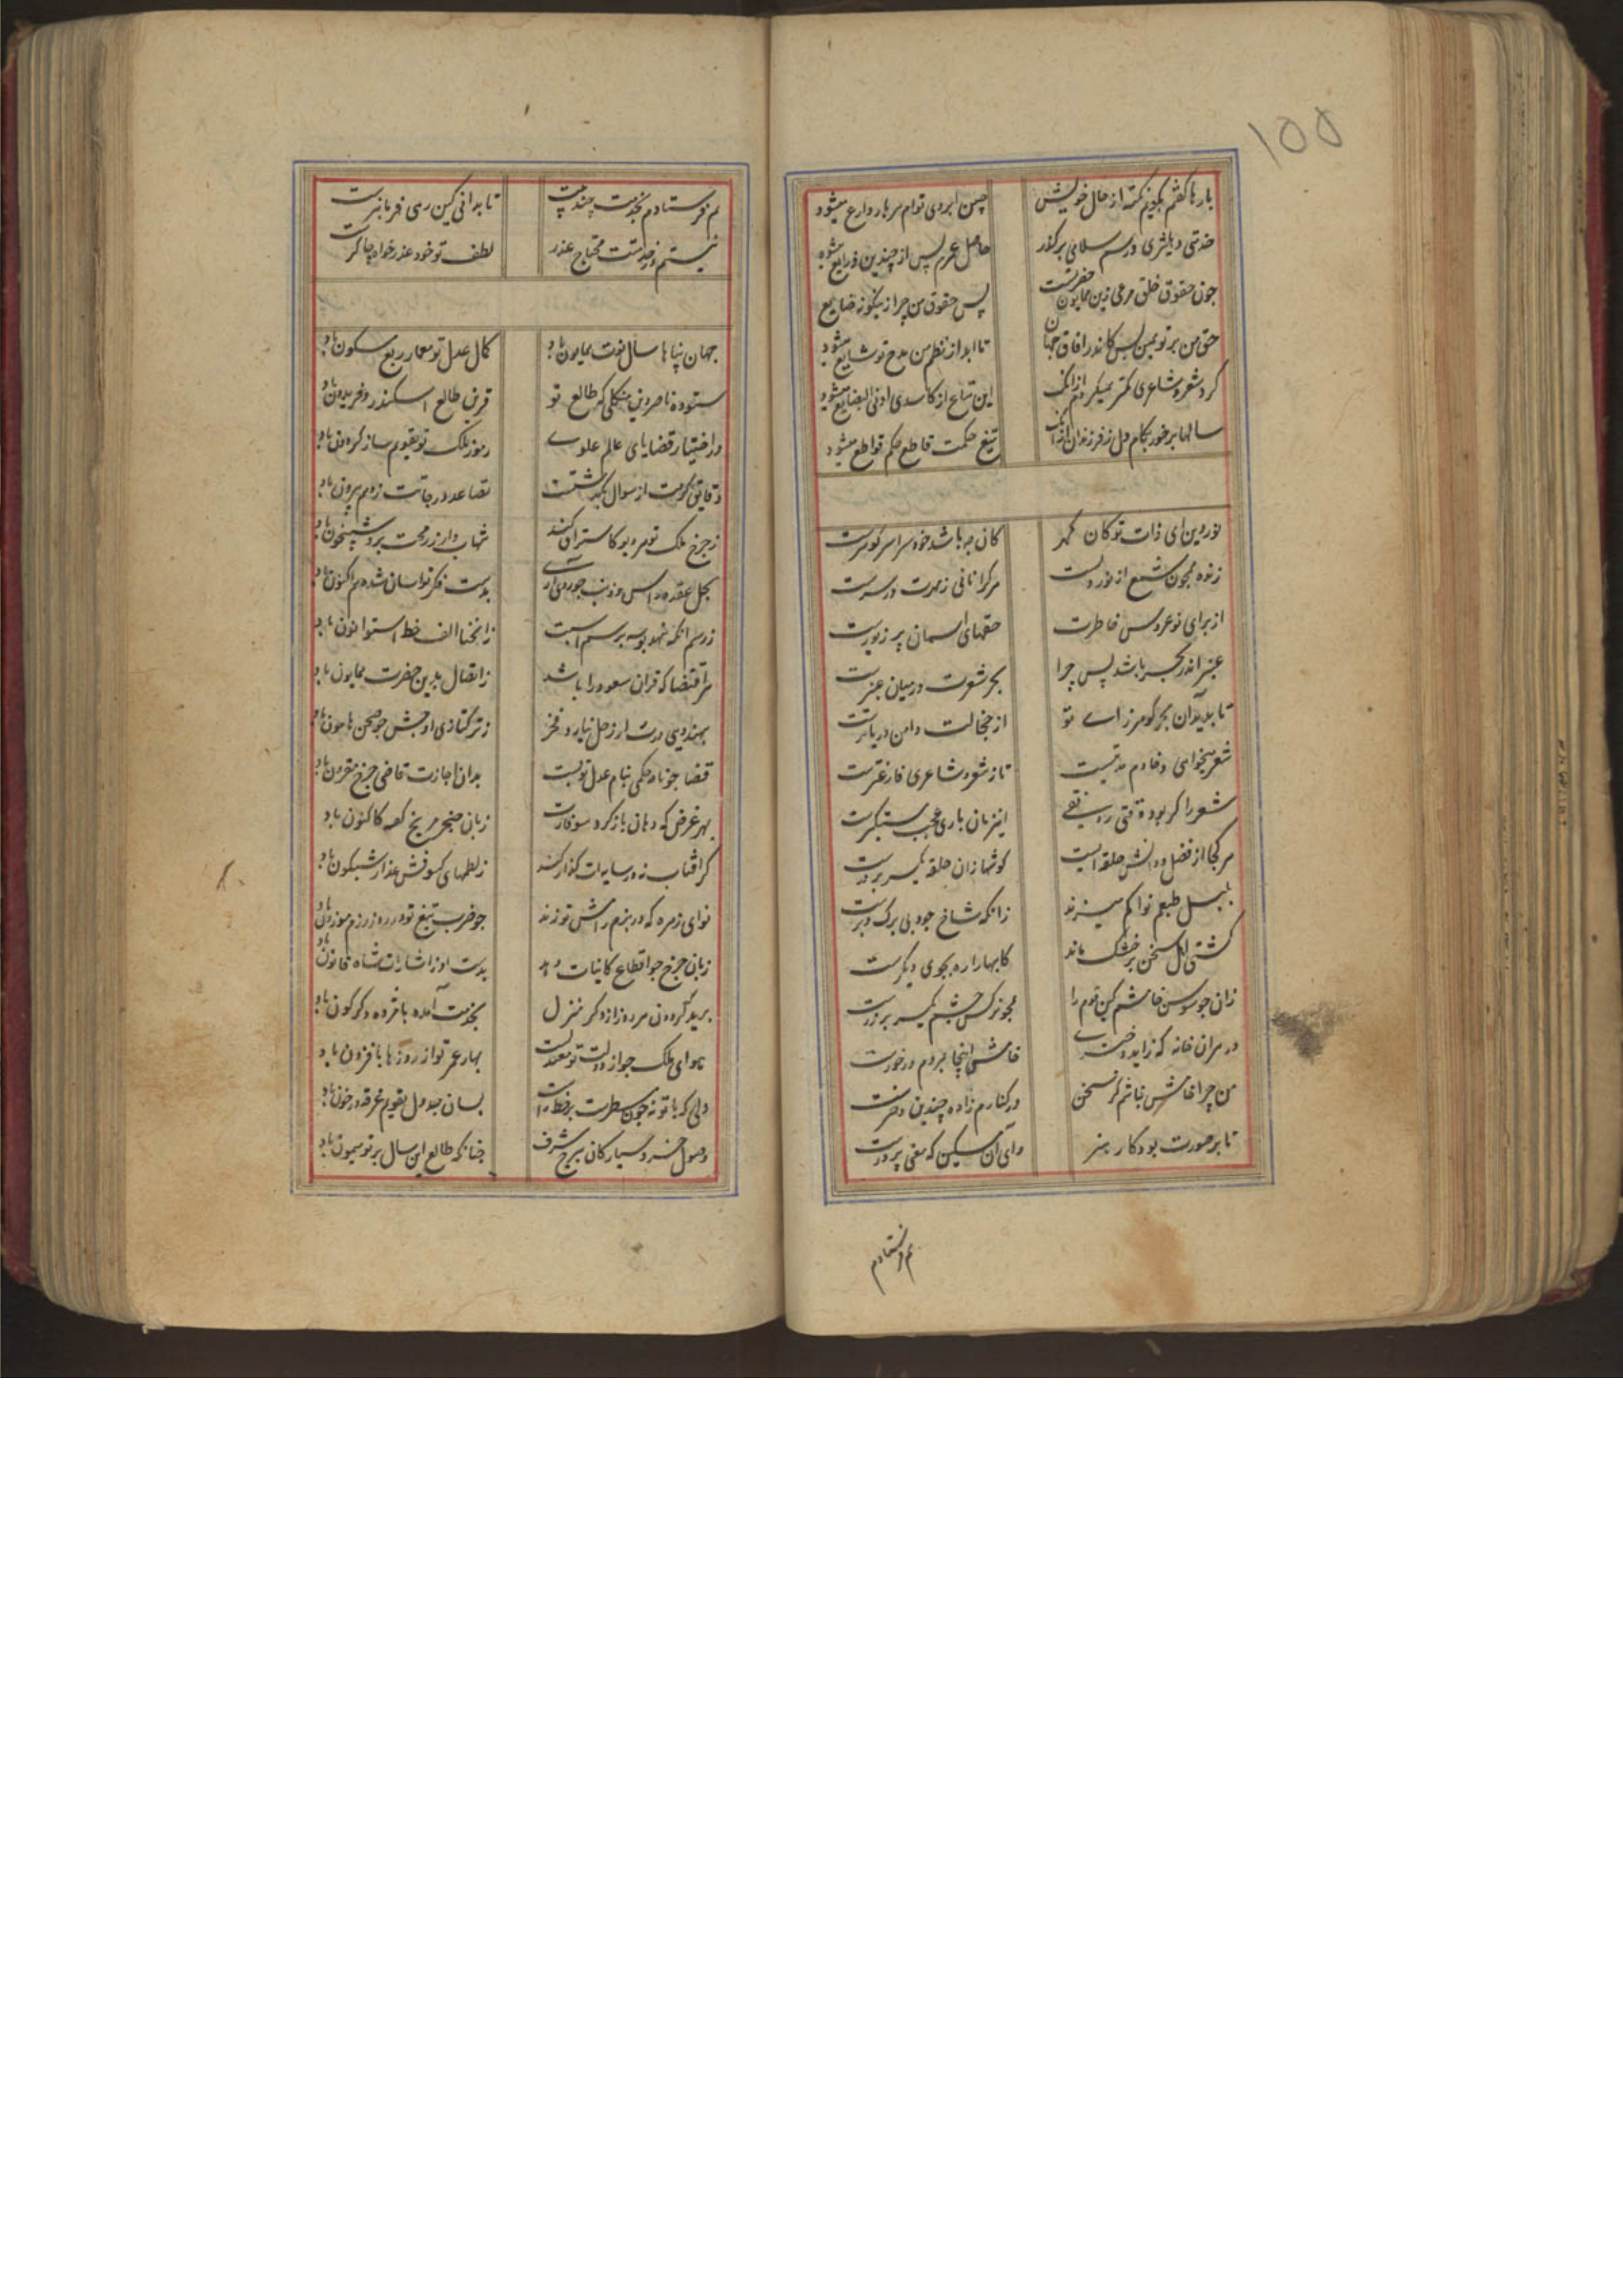 ۱۵۵
بارها گفتم بگویم نکته از حال خویش چین ابروی توام هر بار وارع میشود
خدمتی دیلثری در سلامی بر گذر حاصل عمرم پس از چندین ذرایع میشود
چون حقوق خلق مرعی زین همایون حضرتست پس حقوق من چرا زینگونه ضایع
حق من بر تو همین بس کاندر افاق جهان تا ابد از نظم من مدح تو شایع میشود
گرد شعر و شاعری کمتر همیکردم ازانک این متاع از کاسدی ادنی البضایع میشود
سالها برخور بکام دل ز فرزندان ازانک تیغ حکمت قاطع حکم قواطع میشود
نور دین ای ذات تو کان گهر کان چه باشد خود سراسر گوهرست
زنده همچون شمع از نور دلست هر کرا نانی ز مهرت در سرست
از برای نو عروس خاطرت حقهای اسمان پر زیورست
عنبر اندر بحر باشد پس چرا بحر شعرت در میان عنبرست
تا بدید آن بحر گوهرزای تو از خجالت دامن دریا ترست
شعر میخواهی و خادم مدتیست تا ز شعر و شاعری فارغترست
شعر را گر بود وقتی رونقی اینزمان باری عجب مستنکرست
هر کجا از فضل و دانش حلقه ایست گوشها زان حلقه یکسر بر درست
بلبل طبعم نوا کم میزند زانکه شاخ جود بی برگ و برست
کشتی اهل سخن بر خشک ماند کابها را ره بجوی دیگرست
زان چو سوسن خامشم کین قوم را همچو نرگس چشم یکسر بر زرست
در هران خانه که زاید دختری خامشی اینجا بمردم درخورست
من چرا خامش نباشم کز سخن در کنارم زاده چندین دخترست
تا بر صورت بود کار هنر وای آن مسکین که معنی پرورست
هم فرستادم
هم فرستادم بخدمت چند بیت تا بدانی کین رهی فرمانبرست
نیستم در خدمتت محتاج عذر لطف تو خود عذرخواه چاکرست
جهان پناها سال نوت همایون باد کمال عدل تو معمار ربع مسکون باد
ستوده ناصر دین منکلی که طالع تو قرین طالع اسکندر و فریدون باد
در اختیار قضایای عالم علوی رموز کلک تو تقویم ساز گردون باد
دقایق کرمت از سوال بگذشتست تصاعد درجاتت ز وهم بیرون باد
ز چرخ ملک تو هر دیو کاستراق کند شهاب وار ز رمحت برو شبیخون باد
بحل عقده راس و ذنب چو روی آری بدست فکر تو اسان شده هم اکنون باد
ز رسم انکه شهد بوسه بر سم اسبت ز انحنا الف خط استوا نون باد
هر اقتضا که قران سعود را باشد ز اتصال بدین حضرت همایون باد
بهندویی درت ار زحل نیارد فخر ز ترکتازی او جبش چو صحن هامون باد
قضا چو نامه حکمی بنام عدل تو بست بدان اجازت قاضی چرخ مقرون باد
بهر غرض که دهان باز کرد سوفارت زبان خنجر مریخ گفته کاکنون باد
گر افتاب نه در سایه ات گذار کند ز لطمهای کسوفش عذار شبگون باد
نوای زمره که در بزم رامش تو زند چو ضرب تیغ تو در روز رزم موزون باد
زبان چرخ چو اقطاع کاینات دهد بدست او ز اشارات شاه قانون باد
برید گردون هر روز از دگر منزل بخدمت آمده با مژده دگرگون باد
هوای ملک چو از دولت تو معتدلست بهار عمر تو از روزها بافزون باد
دلی که با تو نه چون مسطرست بر خط راست بسان جدول تقویم غرقه در خون باد
وصول خسرو سیارگان ببرج شرف چنانکه طالع این سال بر تو میمون باد